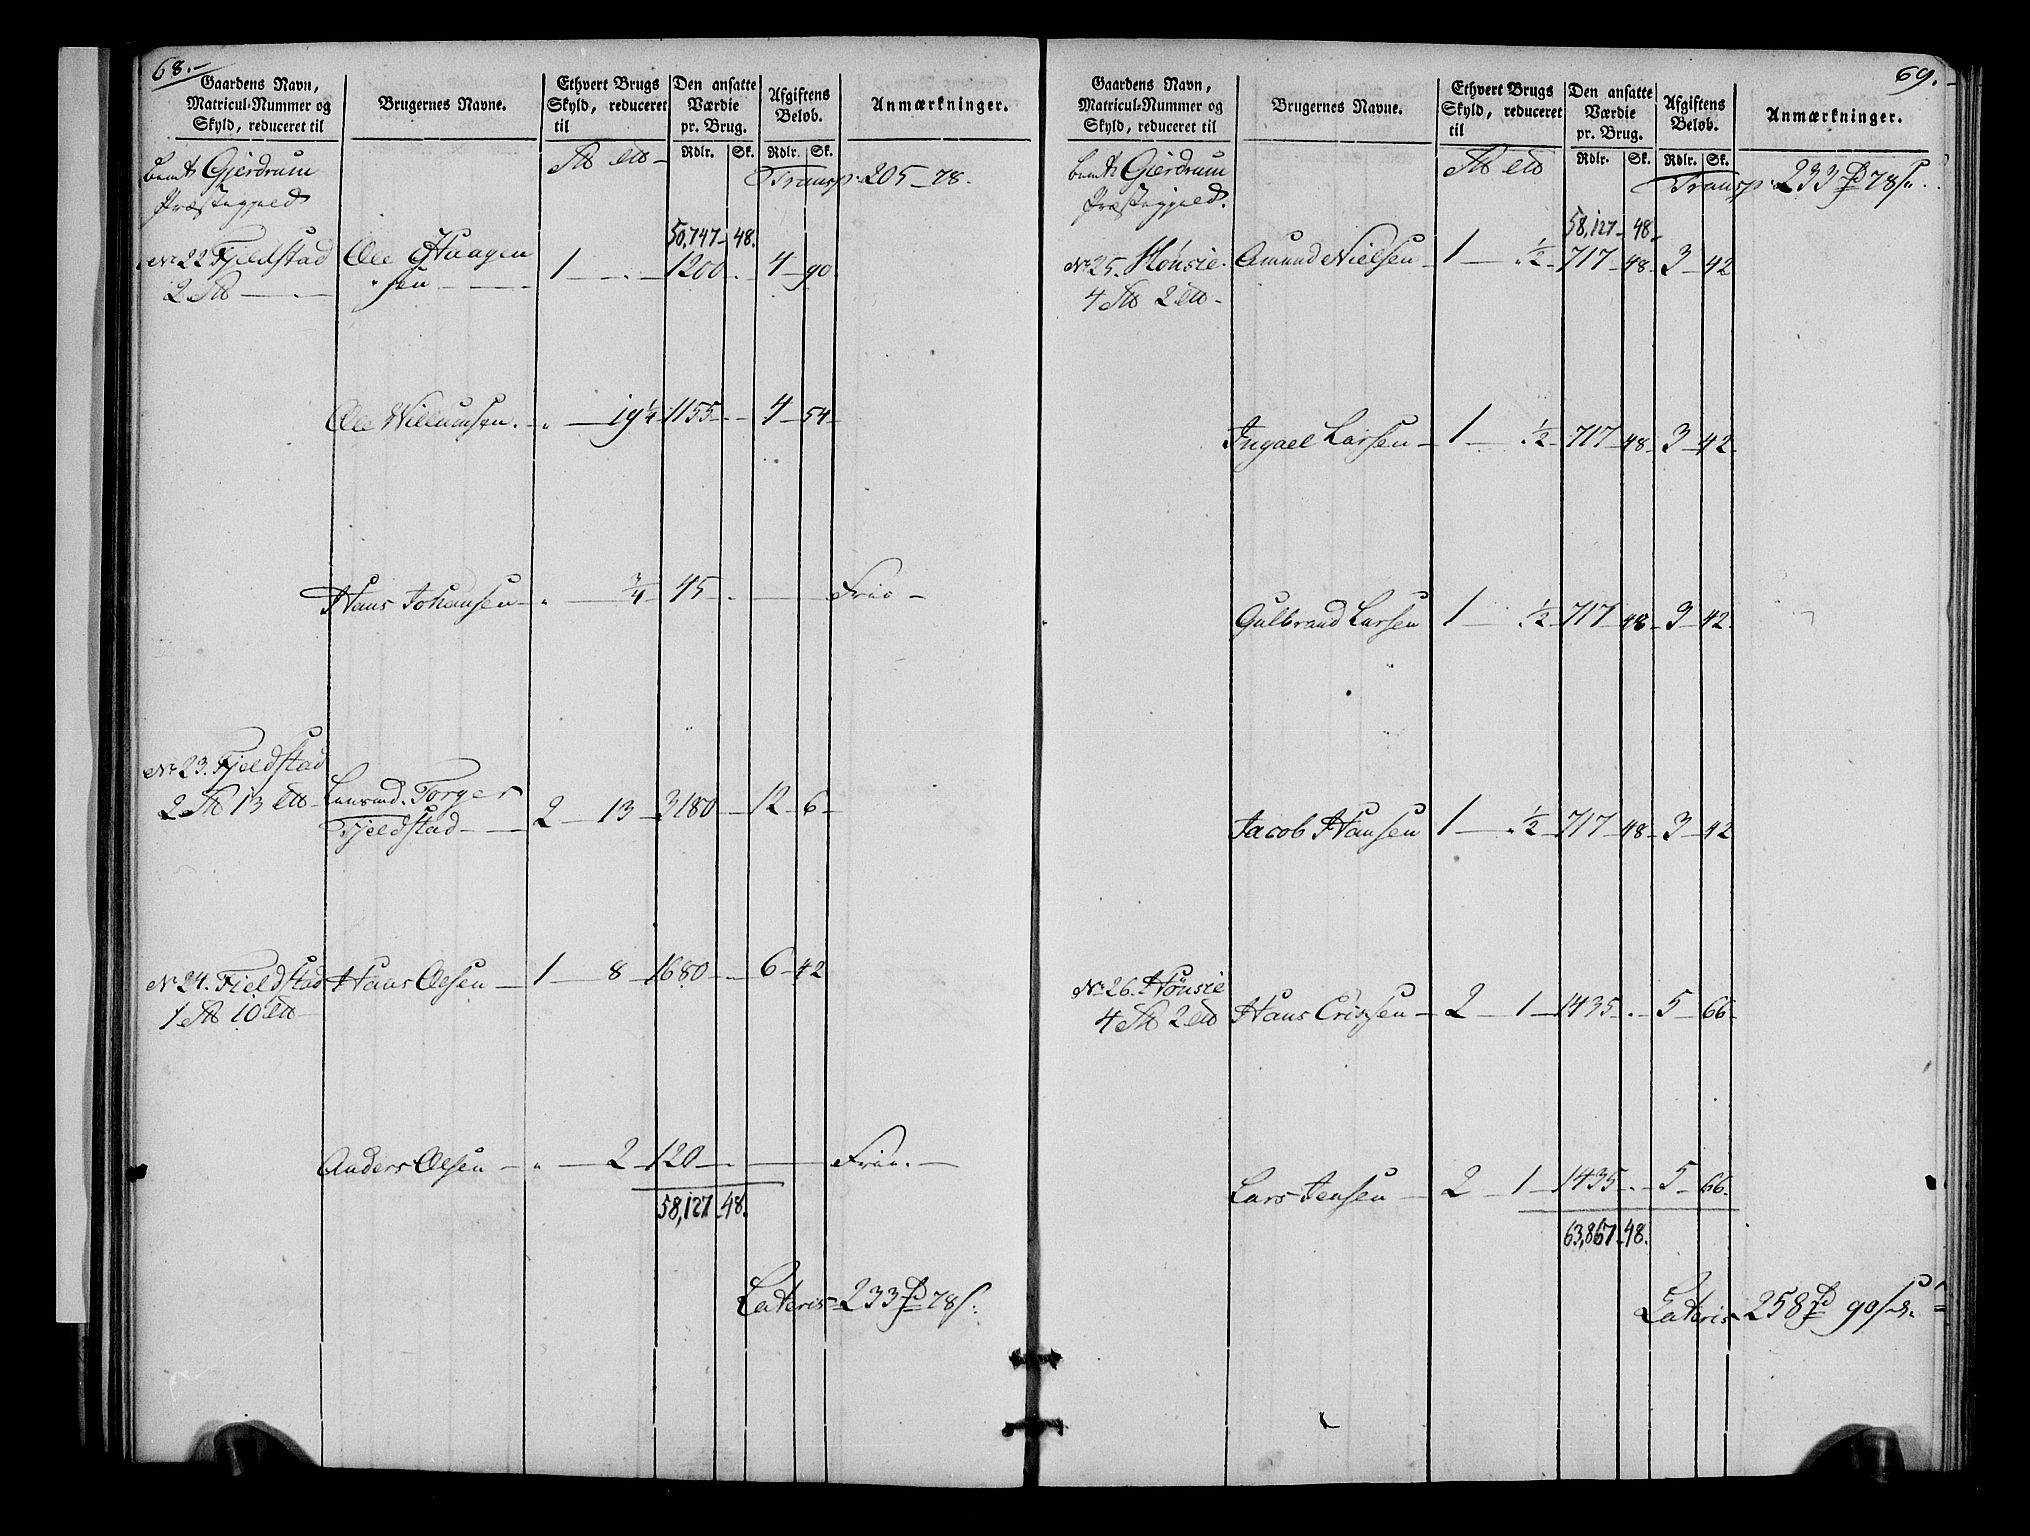 68.-
Gaardens Navn, Matricul-Nummer og Skyld, reduceret til
Brugernes Navne.
Ethvert Brugs Skyld, reduceret til
Den ansatte Værdie pr. Brug.
Afgiftens Beløb.
Anmærkninger.
Rdlr. Sk. Rdlr. Sk.
Gjerdrum
Præstegjeld
Transp: 205-78.
50,747-48.
No 22 Fjeldstad Ole Haagen 1 - 1200 - 4-90
2 sen
Ole Willumsen - 19 1/4 1155 - 4-54
Hans Johansen - 3/4 45 - Frie -
No 23. Fjeldstad
2 13 Lensmd. Torger 2 - 13 - 3180 - 12-6-
Fjeldstad
No 24. Fieldstad Hans Olsen - 1 - 8 - 1680 - 6-42
1 10
Anders Olsen - 2 - 120 - Frie. -
58,127-48.
Lateris 233 78
69.
Gaardens Navn, Matricul-Nummer og Skyld, reduceret til
Brugernes Navne.
Ethvert Brugs Skyld, reduceret til
Den ansatte Værdie pr. Brug.
Afgiftens Beløb.
Anmærkninger.
Rdlr. Sk. Rdlr. Sk.
Gierdrum
Præstegjeld.
Transp: 233 78
58,127-48-
No 25. Hönsie. Amund Nielsen - 1 - 1/2 - 717-48-3-42
4 2
Ingael Larsen - 1 - 1/2 - 717-48-3-42
Gulbrand Larsen 1 1/2 - 717-48-3-42
Jacob Hansen 1 - 1/2 - 717-48-3-42
No 26. Hönsie
4 2 Hans Crispsen - 2 - 1 - 1435 - 5-66-
Lars Jensen - 2 - 1 - 1435 - 5-66-
63,867-48.
Lateris 258 90